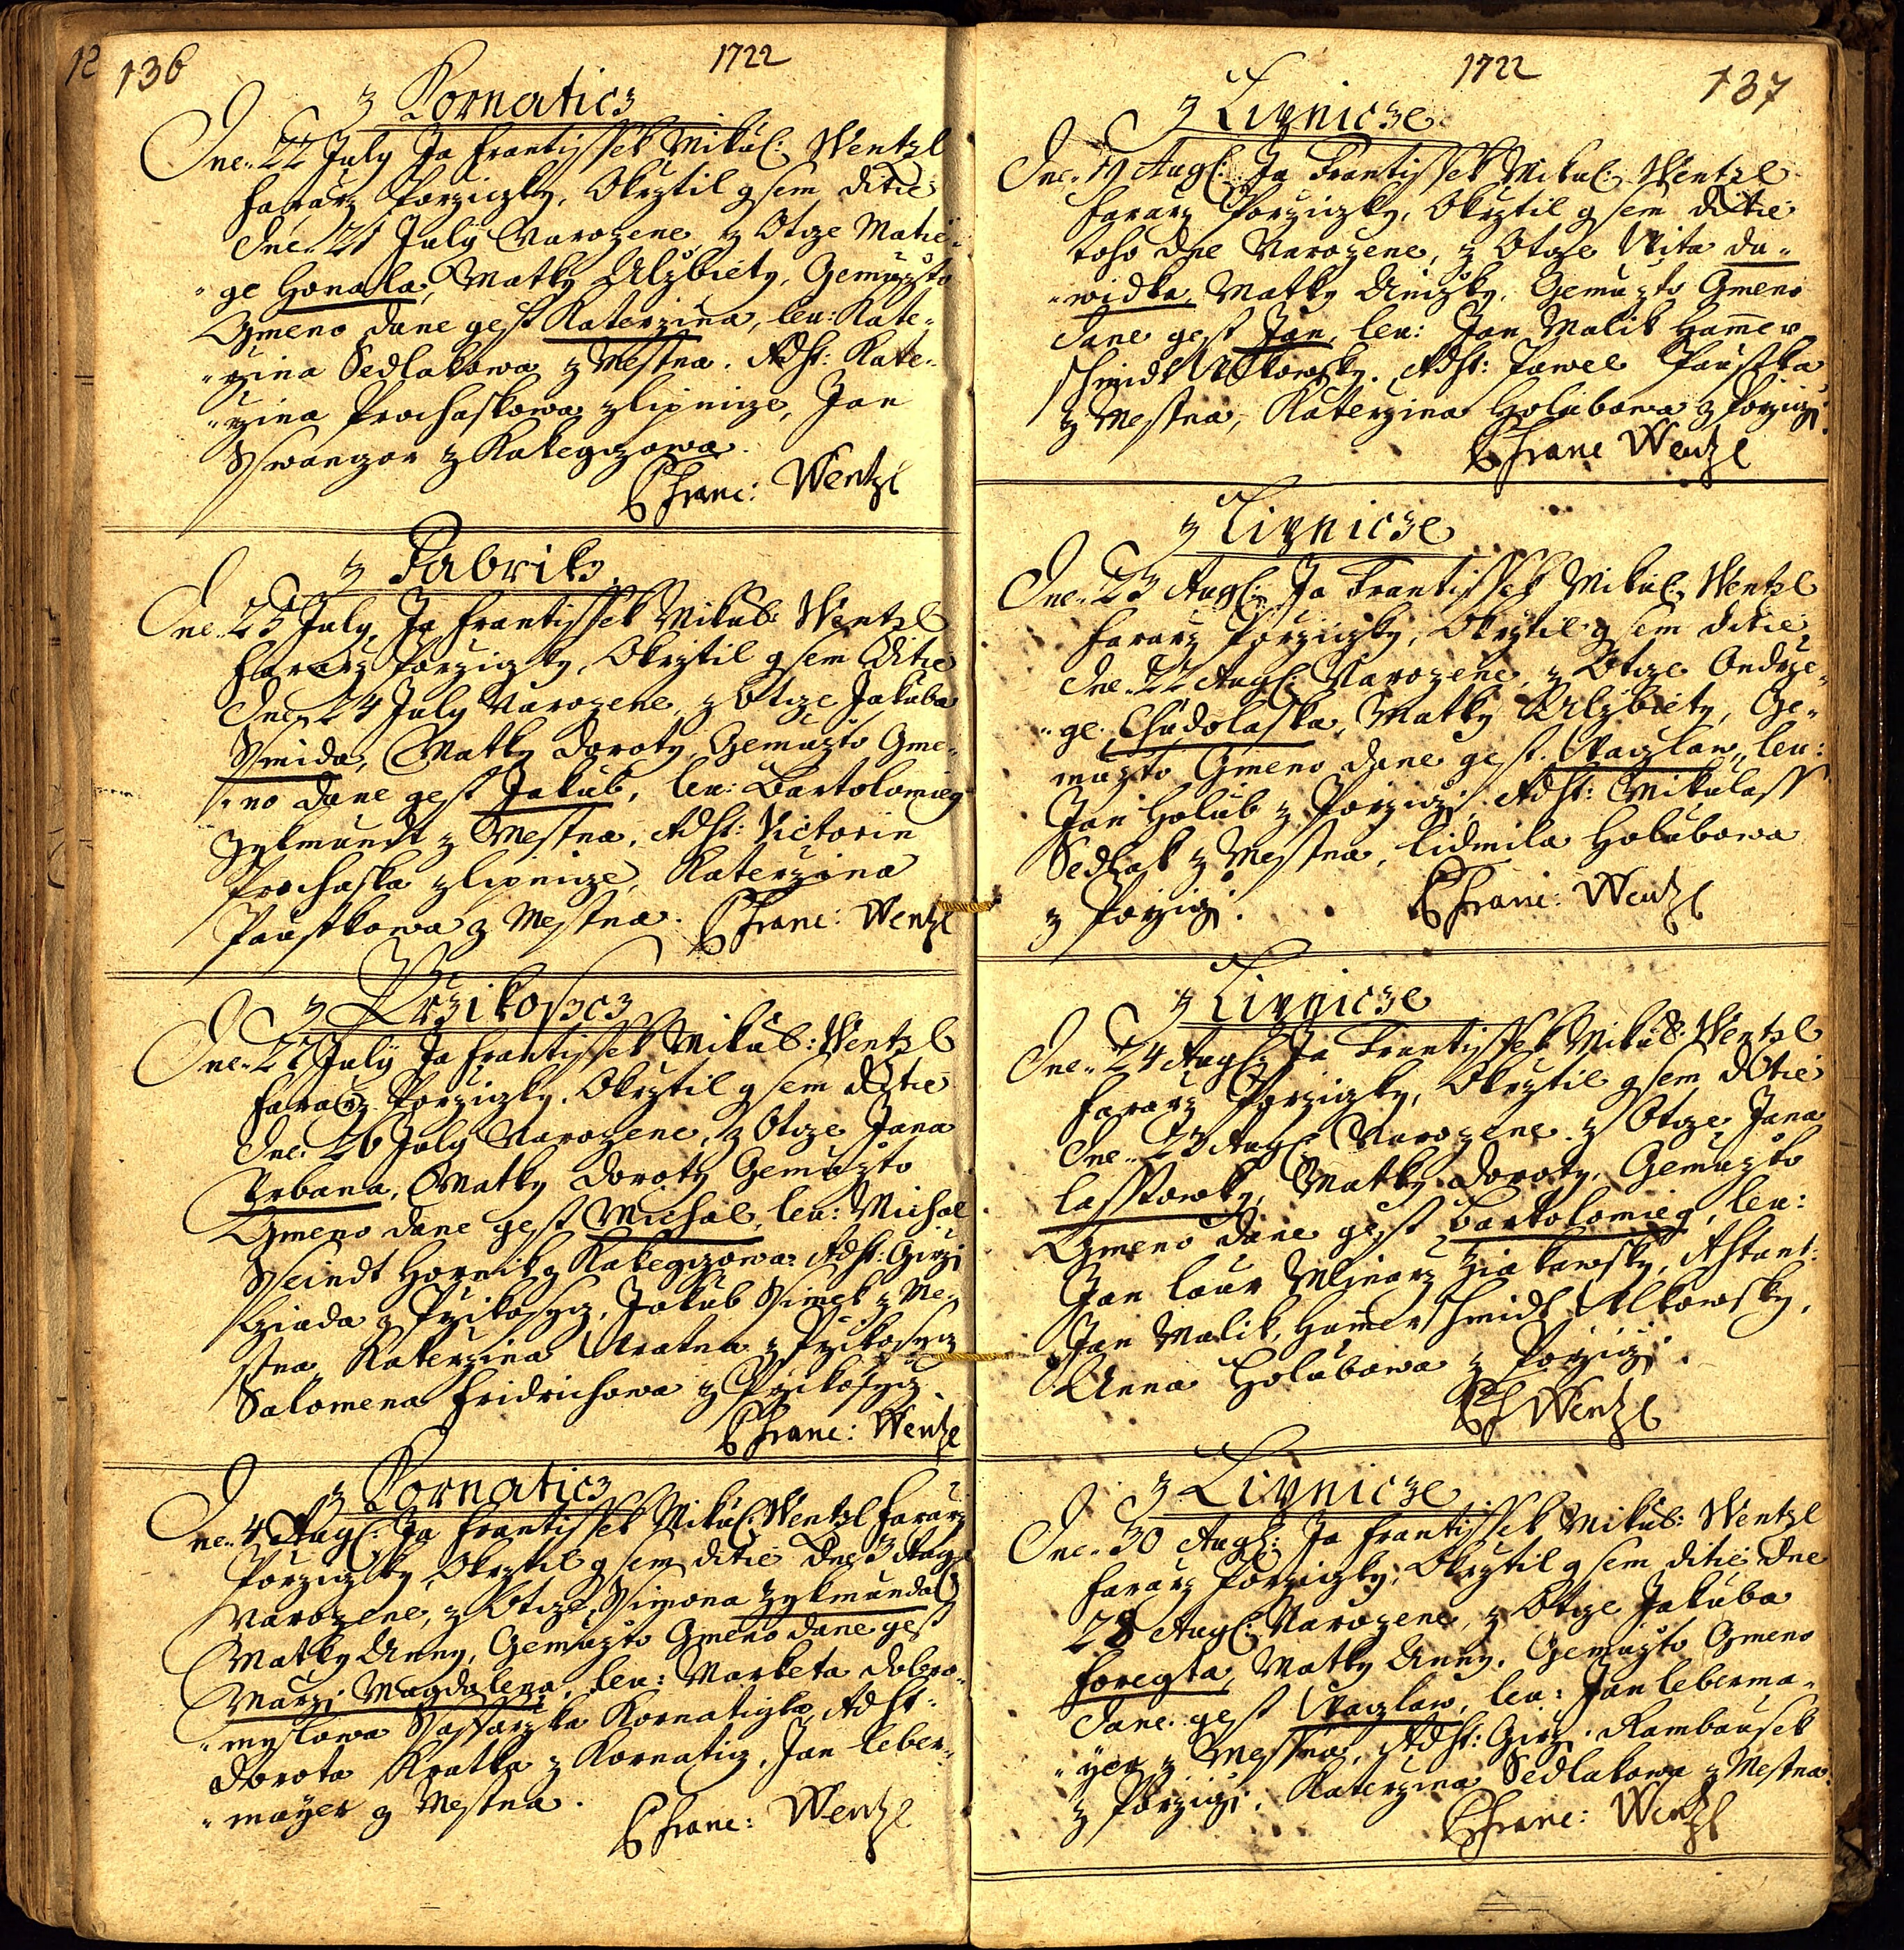 12 136
1722
z Kornaticz
Dne 22 July Ja Frantissek Mikul: Wentzl
Fararz Porziczky, Okrztil gsem ditie
Dne 21 July Narozene, z Otcze Matie-
"ge Honala, Matky Alzbiety, Gemuzto
Gmeno dane gest Katerzina, leu: Kate-
"rzina Sedlakowa z Mestna. Adst: Kate-
"rzina Prochaskowa z Lipnicze, Jan
Sswanzar z Kakegczowa.
P Franc: Wentzl
z Fabrik
Dne 25 July, Ja Frantissek Mikul: Wentzl
Fararz Porziczky, Okrztil gsem Ditie
Dne 24 July Narozene, z Otcze Jakuba
Ssmida, Matky Doroty, Gemuzto Gme-
"no dane gest Jakub, leu: Bartolomieg
Zykmundt z Mestna, Adst: Victorin
Prochaska z Lipnicze, Katerzina
Paustkowa z Mestna. P Franc: Wentzl
z Przikosycz
Dne 27 July Ja Frantissek Mikul: Wentzl
Fararz Porziczky, Okrztil gsem ditie
Dne 26 July Narozene, z Otcze Jana
Urbana, Matky Doroty Gemuzto
Gmeno dane gest Michal, leu: Michal
Sseindt Hornik z Kakegczowa: Adst: Girzi
Hiada z Przikosycz, Jakub Ssimek z Me-
stna, Katerzina Kratka z Przikosycz
Salomena Fridrichowa z Przikosycz.
P Franc: Wentzl
z Kornaticz
Dne 4 Aug: Ja Frantissek Mikul: Wentzl Fararz
Porziczky Okrztil gsem ditie Dne 3 Aug:
Narozene, z Otcze Ssimona Zykmunda
Matky Anny, Gemuzto Gmeno dane gest
Marzi Magdalena, leu: Marketa Dobro-
"myslowa Ssaffarzka Kornatizka, Adst:
Dorota Kratka z Kornatiz, Jan Leber-
"mayer z Mestna.
P Franc: Wentzl
1722
137
z Lipnicze
Dne 19 Aug: Ja Frantissek Mikul: Wentzl
Fararz Porziczky, Okrztil gsem ditie
toho dne Narozene, z Otcze Wita Da-
"widka, Matky Anizky, Gemuzto Gmeno
dane gest Jan, leu: Jan Malik Hammer
schmidt Wlkowsky. Adst: Pawel Paustka
z Mestna, Katerzina Holubowa z Porziczi.
P Franc Wentzl
z Lipnicze
Dne 23 Aug: Ja Frantissek Mikul: Wentzl
Fararz Porziczky, Okrztil gsem ditie
Dne 22 Aug: Narozene, z Otcze Ondrze-
"ge Chudolaska, Matky Alzbiety, Ge-
muzto Gmeno dane gest Waczlaw, leu:
Jan Holub z Porziczi. Adst: Mikulass
Sedlak z Mestna, Lidmila Holubowa
z Porziczi.
P Franc: Wentzl
z Lipnicze
Dne 24 Aug: Ja Frantissek Mikul: Wentzl
Fararz Porziczky, Okrztil gsem ditie
Dne 23 Aug: Narozene z Otcze Jana
Lasstowky, Matky Doroty, Gemuzto
Gmeno dane gest Bartolomieg, leu:
Jan Laur Mlinarz Ziakawsky, Astant:
Jan Malik, Hammerschmidt Wlkowsky,
Anna Holubowa z Porziczi.
P F Wentzl
z Lipnicze
Dne 30 Aug: Ja Frantissek Mikul: Wentzl
Fararz Porziczky, Okrztil gsem ditie Dne
28 Aug: Narozene, z Otcze Jakuba
Foregta, Matky Anny, Gemuzto Gmeno
dane gest Waczlaw, leu: Jan Leberma-
"yer z Mestna, Adst: Girzi Rambausek
z Porziczi, Katerzina Sedlakowa z Mestna.
P Franc: Wentzl